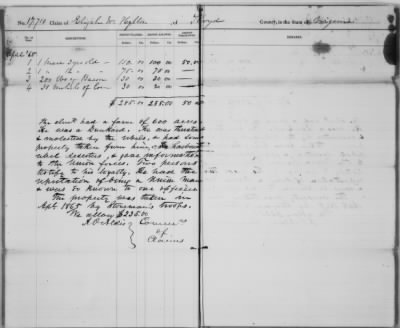 No. 17714 Claim of Elijah W. Hylton of Floyd County, in the State of Virginia
REMARKS.
Apl '65
1 1 Mare 3 yrs old 150 00 100 00 50 00
2 1 " 75 00 75 00
3 200 lbs of Bacon 30 00 30 00
4 30 bushels of Corn 30 00 30 00
$285.00 235.00 50 00
The clmt had a farm of 600 acres.
He was a Dunkard. He was threatened
& molested by the rebels, & had some
property taken from him, & he harbored
rebel deserters, & gave information
to the Union forces. Two persons
testify to his loyalty. He had the
reputation of being a Union man
& was so known to one officer
The property was taken in
Apl. 1865 by Stoneman's troops.
We allow $235.00
A. O. Aldis Commrs
of
Claims